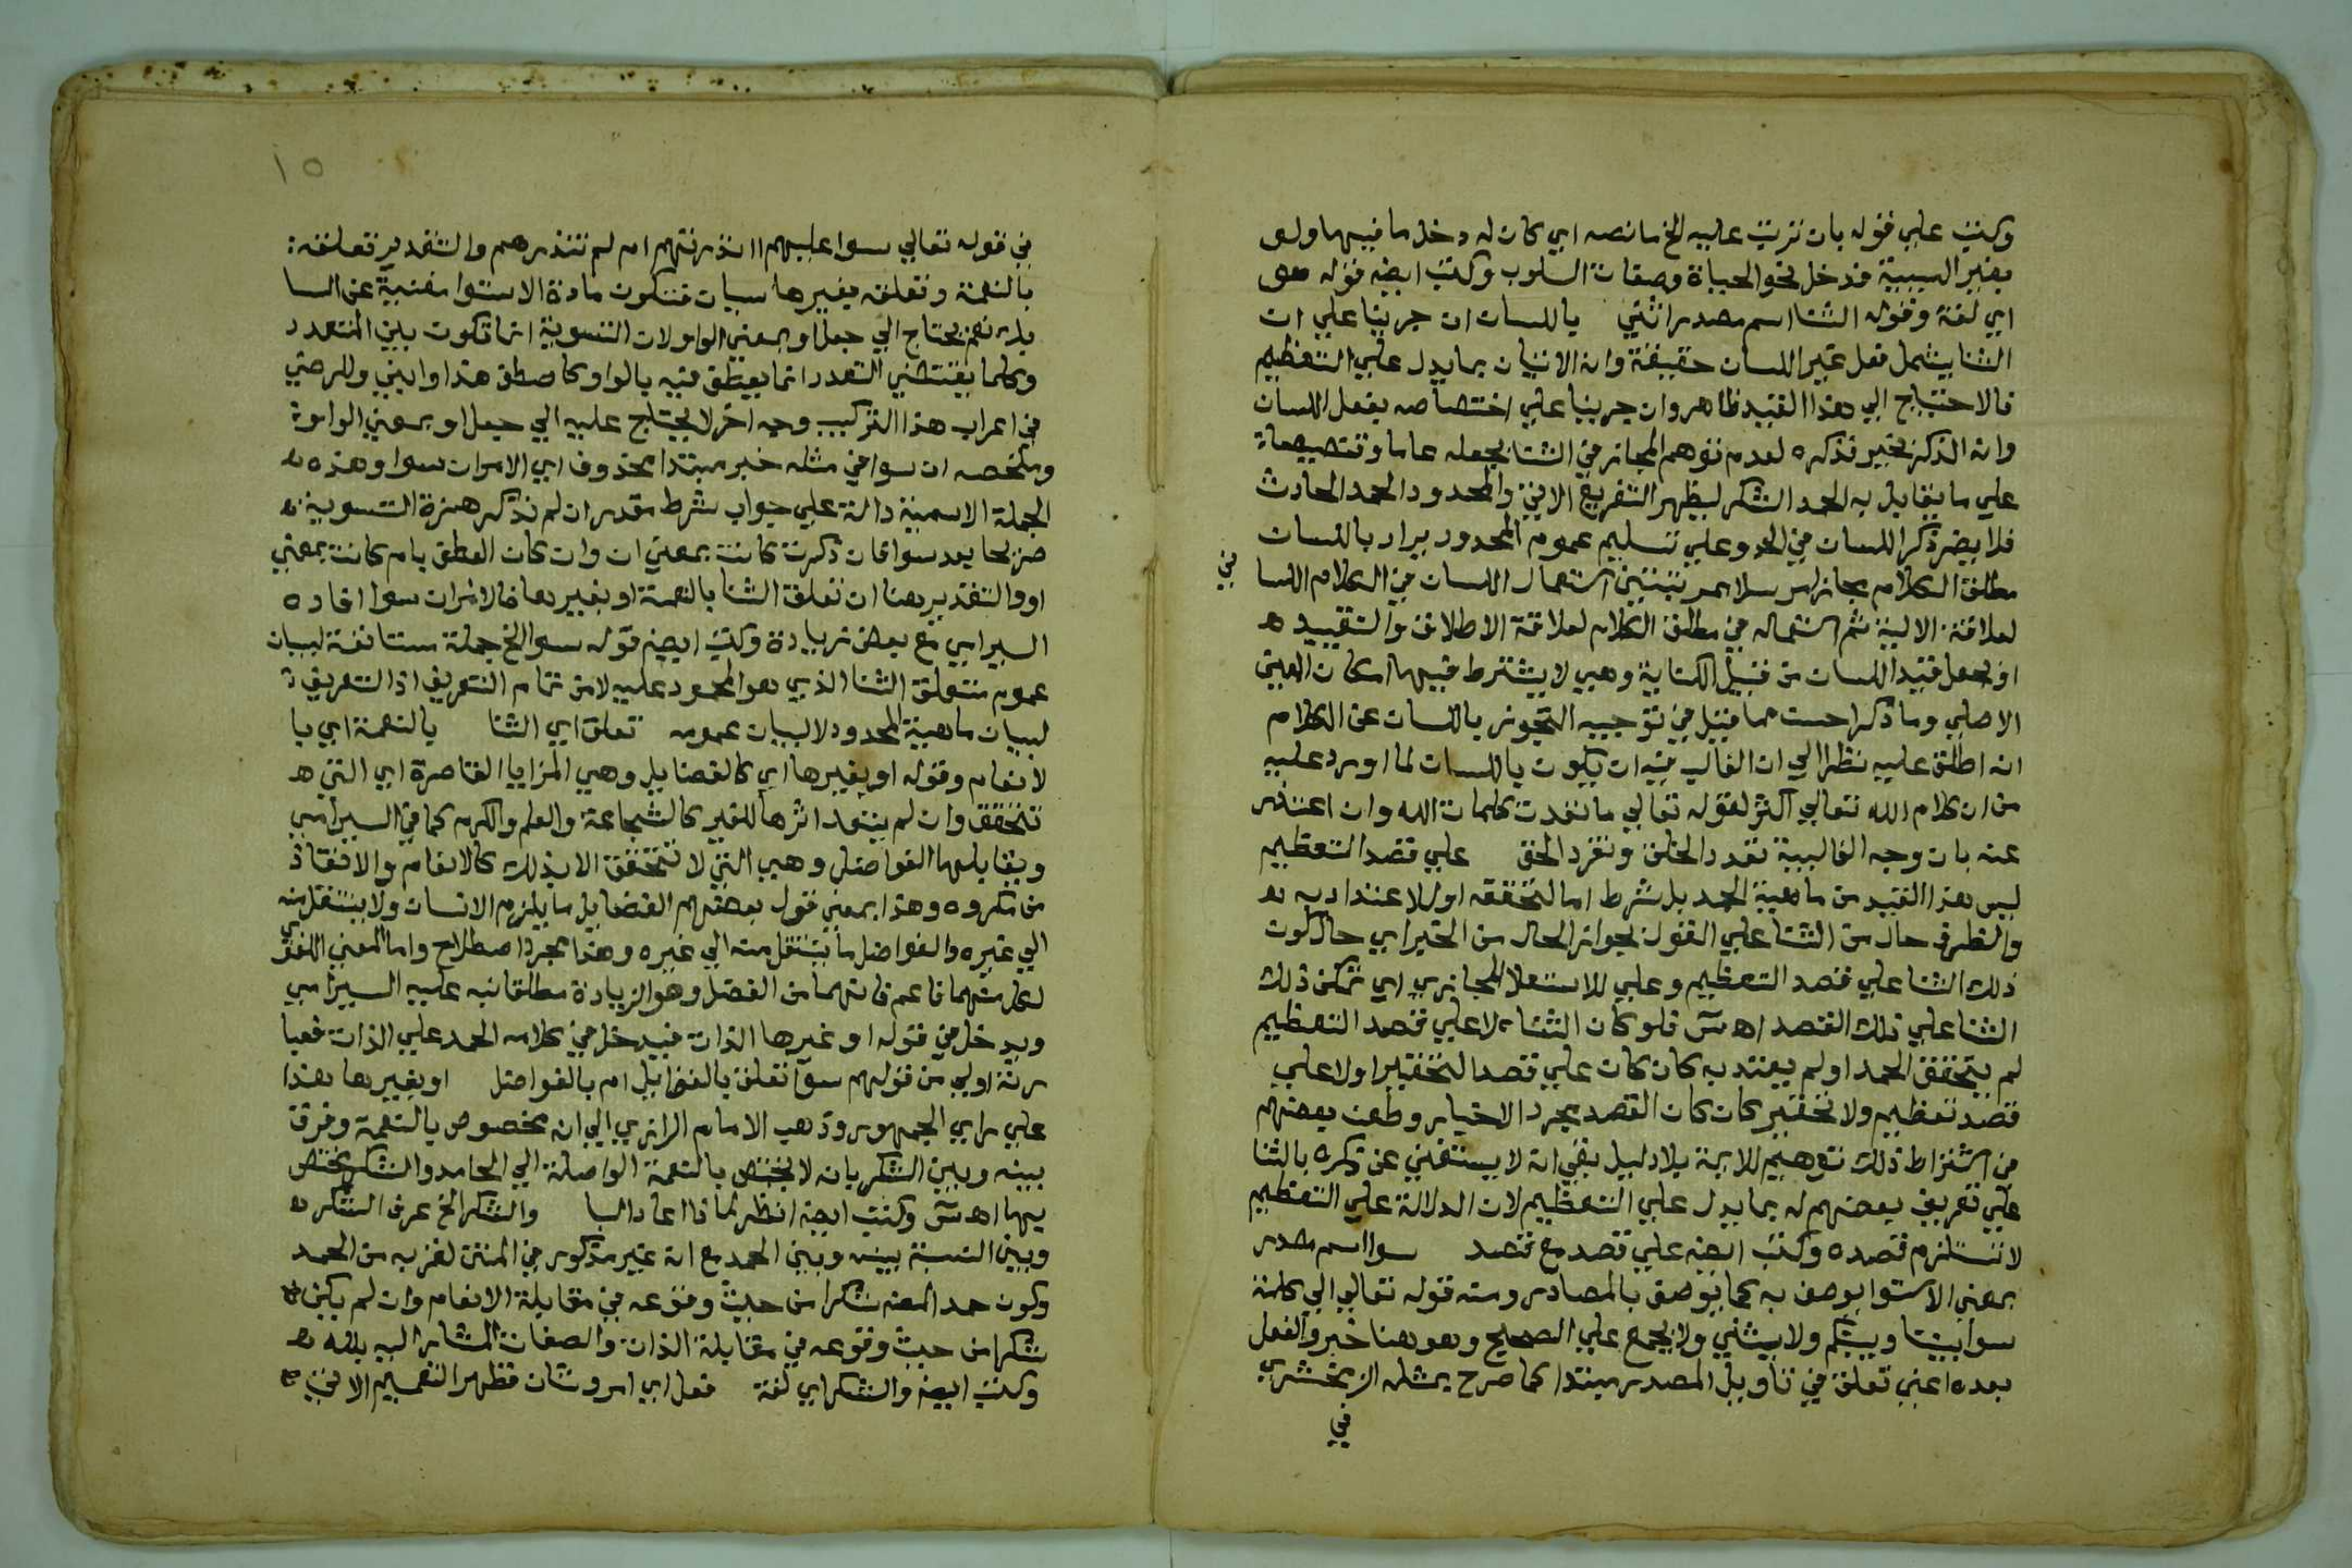 وكتب علي قوله بان ترتب عليه الخ ما نصه اي كان له دخل ما فيها ولو
بغير السببية فدخل نحو الحياة وصفات السلوب وكتب ايضا قوله هو
اي لغة وقوله الثنا اسم مصدر اثني باللسان ان جرينا علي ان
الثنا يشمل فعل غير اللسان حقيقة وانه الاتيان بما يدل علي التعظيم
فالاحتياج الي هذا القيد ظاهر وان جرينا علي اختصاصه بفعل اللسان
وانه الذكر بخير فذكره لعدم توهم المجاز في الثنا بجعله عاما وتنصيصا
علي ما يقابل به الحمد الشكر ليظهر التفريع الاتي والمحدود الحمد الحادث
فلا يضر ذكر اللسان في الحد وعلي تسليم عموم المحدود يراد باللسان
مطلق الكلام مجازا مرسلا بمرتبتين استعمال اللسان في الكلام اللسا
في
لعلاقة الالية ثم استعماله في مطلق الكلام لعلاقة الاطلاق والتقييد
او يجعل قيد اللسان من قبيل الكناية وهي لا يشترط فيها امكان المعني
الاصلي وما ذكر احسن مما قيل في توجيه التجوز باللسان عن الكلام
انه اطلق عليه نظرا الي ان الغالب فيه ان يكون باللسان لما اورد عليه
من ان كلام الله تعالي اكثر لقوله تعالي ما نفدت كلمات الله وان اعتذر
عنه بان وجه الغالبية تعدد الخلق وتفرد الحق علي قصد التعظيم
ليس هذا القيد من ماهية الحمد بل شرط اما لتحققه او للاعتداد به
والظرف حال من الثنا علي القول بجواز الحال من الخبر اي حال كون
ذلك الثنا علي قصد التعظيم وعلي للاستعلا المجازي اي تمكن ذلك
الثنا علي ذلك القصد اه س فلو كان الثنا لا علي قصد التعظيم
لم يتحقق الحمد او لم يعتد به كان كان علي قصد التحقير او لا علي
قصد تعظيم ولا تحقير كان كان القصد مجرد الاخبار وطعن بعضهم
في اشتراط ذلك توهيم للائمة بلا دليل بقي انه لا يستغني عن ذكره بالثنا
علي تعريف بعضهم له بما يدل علي التعظيم لان الدلالة علي التعظيم
لا تستلزم قصده وكتب ايضا علي قصد مع قصد سوا اسم مصدر
بمعني الاستوا يوصف به كما يوصف بالمصادر ومنه قوله تعالي الي كلمة
سوا بيننا وبينكم ولا يثني ولا يجمع علي الصحيح وهو هنا خبر والفعل
بعده اعني تعلق في تاويل المصدر مبتدا كما صرح بمثله الزمخشري
في
١٥
في قوله تعالي سوا عليهم اانذرتهم ام لم تنذرهم والتقدير تعلقه
بالنعمة وتعلقه بغيرها سيان فتكون مادة الاستوا مغنية عن السا
بك نعم يحتاج الي جعل او بمعني الواو لان التسوية انما تكون بين المتعدد
وكلما يقتضي التعدد انما يعطف فيه بالواو كاصطف هذا وابني وللرضي
في اعراب هذا التركيب وجه اخر لا يحتاج عليه الي جعل او بمعني الواو
وملخصه ان سوا في مثله خبر مبتدا محذوف اي الامران سوا وهذه
الجملة الاسمية دالة علي جواب شرط مقدر ان لم تذكر همزة التسوية
صريحا بعد سوا فان ذكرت كانت بمعني ان وان كان العطف بام كانت بمعني
او والتقدير هنا ان تعلق الثنا بالنعمة او بغيرها فالامران سوا افاده
السيرامي مع بعض زيادة وكتب ايضا قوله سوا الخ جملة مستانفة لبيان
عموم متعلق الثنا الذي هو المحمود عليه لا من تمام التعريف اذ التعريف
لبيان ماهية المحدود لا لبيان عمومه تعلق اي الثنا بالنعمة اي با
لانعام وقوله او بغيرها اي كالفضايل وهي المزايا القاصرة اي التي
تتحقق وان لم يتعد اثرها للغير كالشجاعة والعلم والكرم كما في السيرامي
ويقابلها الفواضل وهي التي لا تتحقق الا بذلك كالانعام والانقاذ
من مكروه وهذا بمعني قول بعضهم الفضايل ما يلزم الانسان ولا ينتقل منه
الي غيره والفواضل ما ينتقل منه الي غيره وهذا مجرد اصطلاح واما المعني اللغوي
لكل منهما فاعم فانهما من الفضل وهو الزيادة مطلقا نبه عليه السيرامي
ويدخل في قوله او غيرها الذات فيدخل في كلامه الحمد علي الذات فعبا
رته اولي من قولهم سوا تعلق بالفضايل ام بالفواضل او بغيرها هذا
علي راي الجمهور وذهب الامام الرازي الي انه مخصوص بالنعمة وفرق
بينه وبين الشكر بان لا يختص بالنعمة الواصلة الي الحامد والشكر يختص
بها اه س وكتب ايضا انظر لماذا اعاد البا والشكر الخ عرف الشكر
وبين النسبة بينه وبين الحمد مع انه غير مذكور في المتن لقربه من الحمد
وكون حمد المصنف شكرا من حيث وقوعه في مقابلة الانعام وان لم يكن
شكرا من حيث وقوعه في مقابلة الذات والصفات المشار اليه بالله
وكتب ايضا والشكر اي لغة فعل اي امر وشان فظهر التعميم الاتي